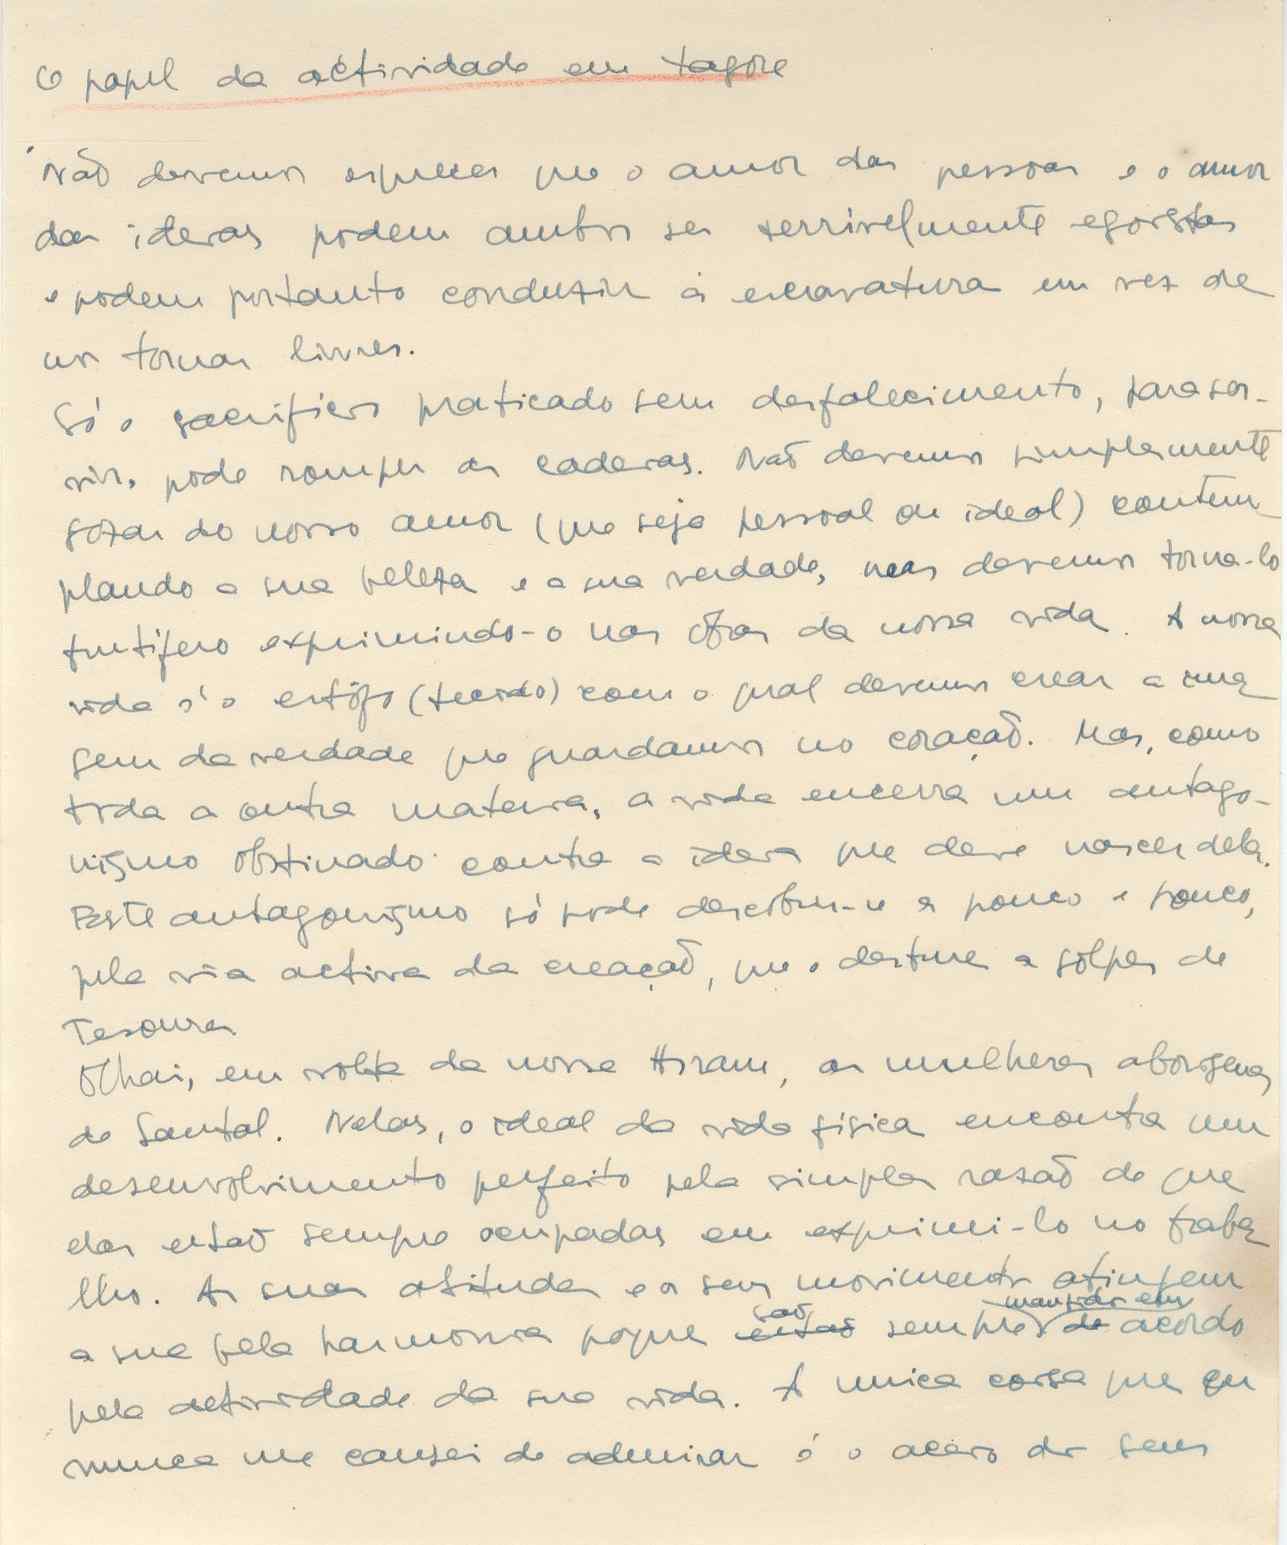 O papel da actividade em Tagore
Não devemos esquecer que o amor das pessoas e o amor
das ideias podem ambos ser terrivelmente egoistas
e podem portanto conduzir à escravatura em vez de
nos tornar livres.
Só o sacrifício praticado sem desfalecimento, para ser-
vir, pode romper as cadeias. Não devemos simplesmente
gozar do nosso amor (que seja pessoal ou ideal) contem
plando a sua beleza e a sua verdade, mas devemos torna-lo
frutifero exprimindo-o nas obras da nossa vida. A nossa
vida é o estôfo (tecido) com o qual devemos crear a ima
gem da verdade que guardamos no coração. Mas, como
toda a outra materia, a vida encerra um antago-
nismo obstinado contra a ideia que deve nascer dela.
Este antagonismo só pode descobrir-se a pouco e pouco,
pela via activa da creação, que o destrue a golpes de
Tesoura
Olhai, em volta da nossa Asram, as mulheres aborigenas
de Santal. Nelas, o ideal da vida fisica encontra um
desenvolvimento perfeito pela simples razaõ de que
elas estaõ sempre ocupadas em exprimi-lo no traba
lho. As suas atitudes e os seus movimentos atingem
a sua bela harmonia porque estaõ saõ sempre de mantidos em acordo
pela actividade da sua vida. A unica coisa que eu
nunca me cansei de admirar é o aceio dos seus